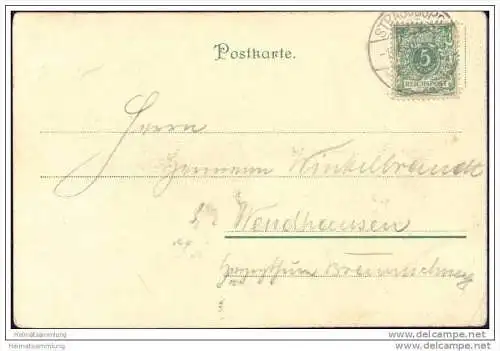 Postkarte.
STRASSBURG
5
REICHSPOST
Herrn
Hermann Winkelbrandt
Wendhausen
Herzogthum Braunschweig
Heimatsammlung
Heimatsammlung.com